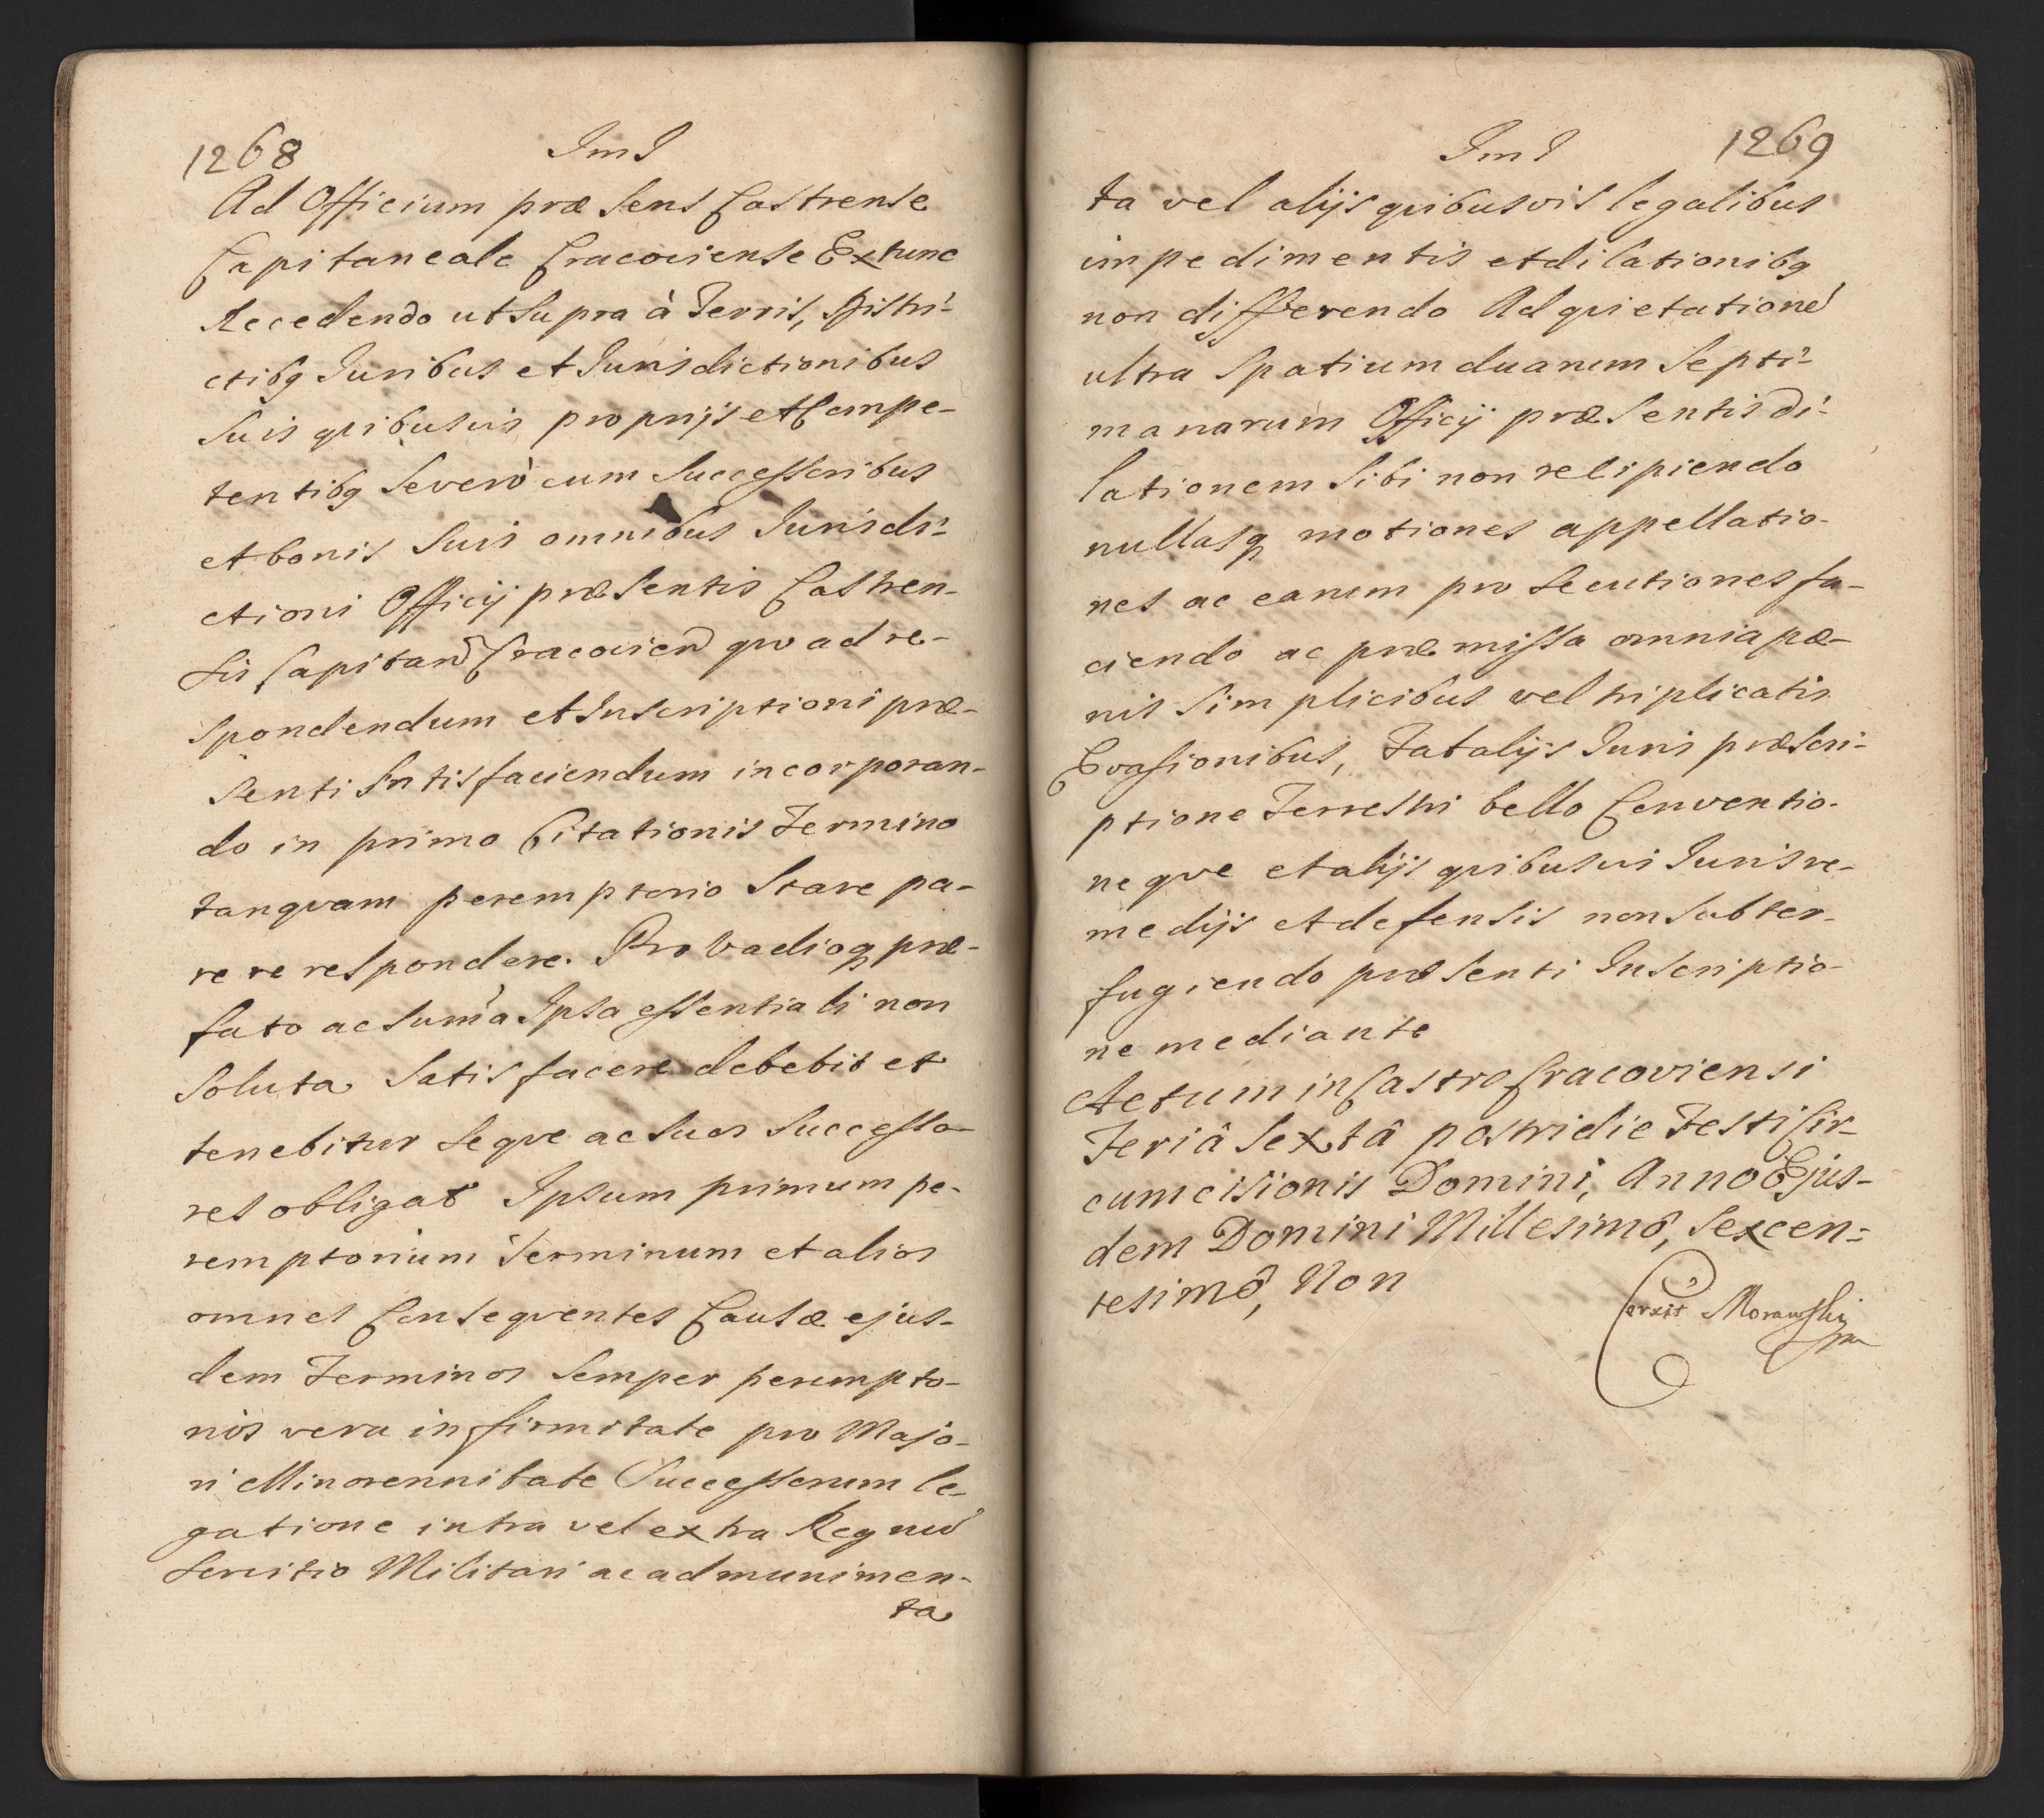 1268 JmJ
Ad Officium præsens Castrense
Capitaneale Cracoviense Extunc
Recedendo ut supra à Terris, Distri-
ctibq Juribus et Jurisdictionibus
suis quibusvis proprijs et Compe-
tentibq Severò cum Successoribus
et bonis suis omnibus Jurisdi-
ctioni Officij præsentis Castren-
sis Capitan Cracovien quo ad re-
spondendum et Inscriptioni præ-
senti satisfaciendum incorporan-
do in primo Citationis Termino
tanqvam peremptorio stare pa-
rere respondere. Pro Vadioq præ-
fato ac suma Ipsa essentiali non
soluta satisfacere debebit et
tenebitur seqve ac suos Successo-
res obligat Ipsum primum pe-
remptorium Terminum et alios
omnes Conseqventes Causæ ejus-
dem Terminos semper perempto-
rios vera infirmitate pro Majo-
ri Minorennitate Successorum le-
gatione intra vel extra Regnu
servitio Militari ac ad munimen-
ta
JmJ 1269
ta vel alijs quibusvis legalibus
impedimentis et dilationibq
non differendo Ad quietatione
ultra spatium duarum Septi-
manarum Officij præsentis di-
lationem sibi non recipiendo
nullasq motiones appellatio-
nes ac earum prosecutiones fa-
ciendo ac præmissa omnia pæ-
nis simplicibus vel triplicatis
Evasionibus, Fatalijs Juris præscri-
ptione Terrestri bello Conventio-
neqve et alijs quibusvis Juris re-
medijs et defensis non subter-
fugiendo præsenti Inscriptio-
ne mediante
Actum in Castro Cracoviensi
Feriâ Sextâ postridie Festi Cir-
cumcisionis Domini, Anno Ejus-
dem Domini Millesimô, Sexcen-
tesimô, Non
Corrxit Morawski